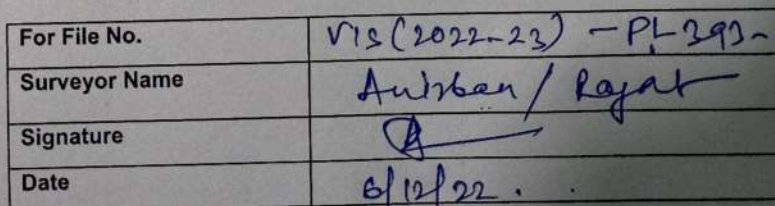 For File No. VIS(2022-23) - PL-393-
Surveyor Name Anirban / Rajat
Signature
Date 6/12/22.